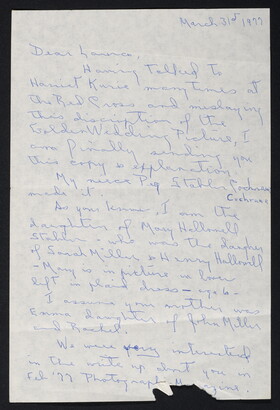 March 31st, 1977
Dear Laura,
Having talked to
Harriet Karie many times at
the Red Cross and mislaying
this discription of the
Golden Wedding Picture, I
am finally sending you
this copy & explanation.
My niece Peg Stabler Cochran
Cochrane
made it.
As you know, I am the
daughter of Mary Hallowell
Stabler - who was the daughter
of Sarah Miller & Henry Hallowell
- Mary is in picture in lower
left in plaid dress - age 6 -
I assume your mother was
Emma daughter of John Miller
and Rachel.
We were very interested
in the write up about you in
Feb '77 Photograph Magazine.